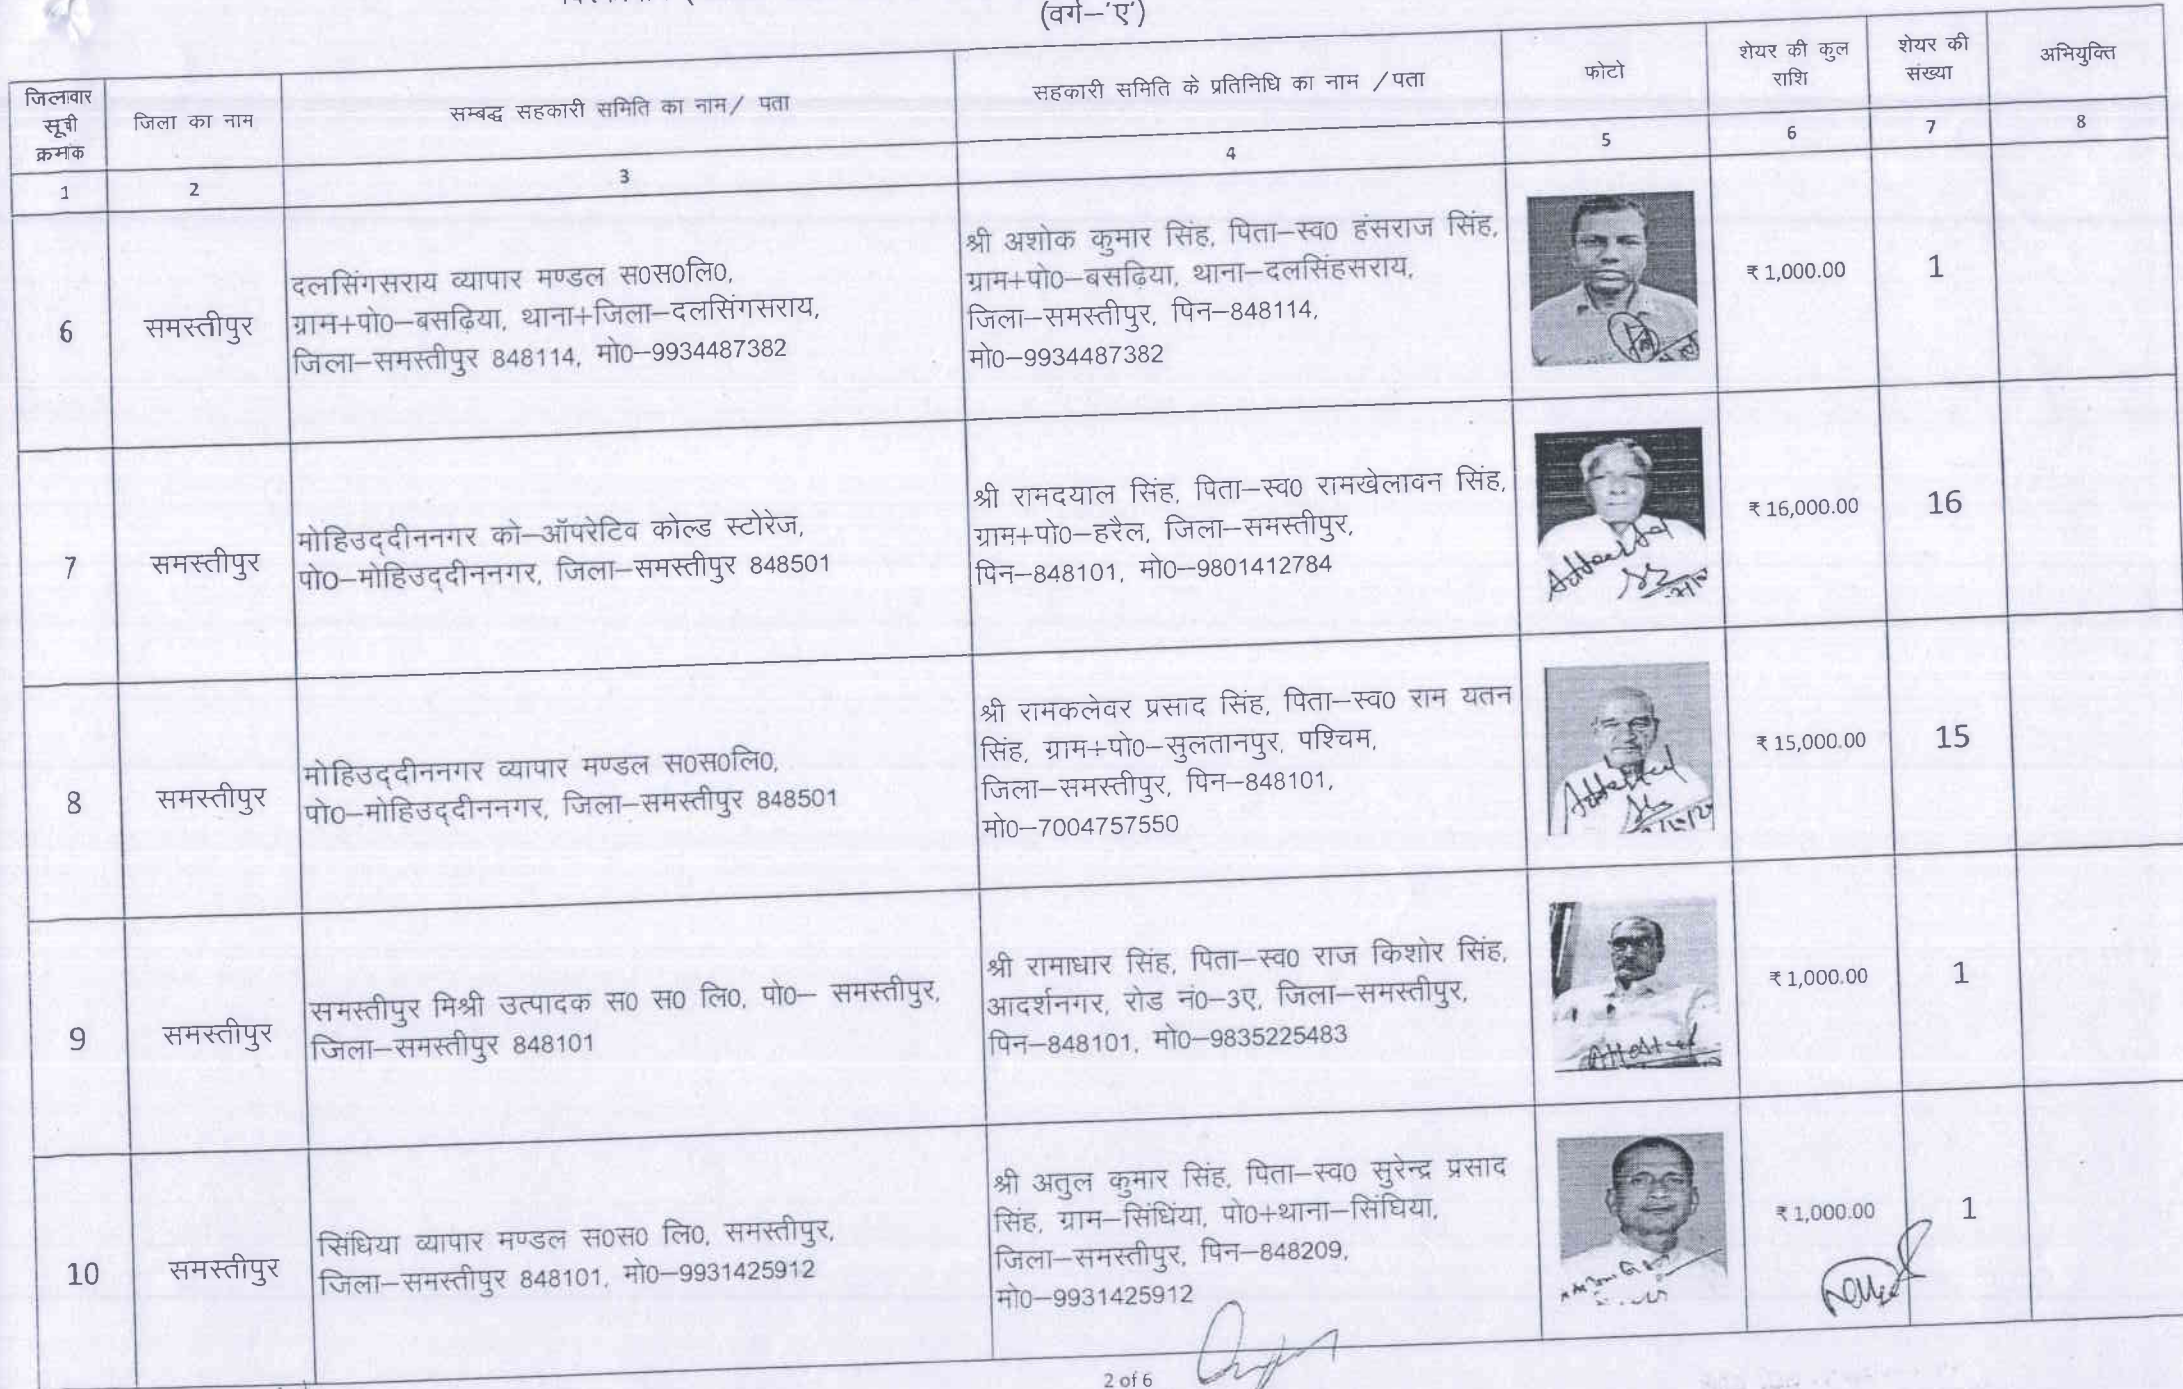 (वर्ग–'ए')
जिलावार सूची क्रमांक
जिला का नाम
सम्बद्ध सहकारी समिति का नाम/ पता
सहकारी समिति के प्रतिनिधि का नाम /पता
फोटो
शेयर की कुल राशि
शेयर की संख्या
अभियुक्ति
1
2
3
4
5
6
7
8
6
समस्तीपुर
दलसिंगसराय व्यापार मण्डल स0स0लि0,
ग्राम+पो0–बसढ़िया, थाना+जिला–दलसिंगसराय,
जिला–समस्तीपुर 848114, मो0–9934487382
श्री अशोक कुमार सिंह, पिता–स्व0 हंसराज सिंह,
ग्राम+पो0–बसढ़िया, थाना–दलसिंहसराय,
जिला–समस्तीपुर, पिन–848114,
मो0–9934487382
₹ 1,000.00
1
7
समस्तीपुर
मोहिउद्दीननगर को–ऑपरेटिव कोल्ड स्टोरेज,
पो0–मोहिउद्दीननगर, जिला–समस्तीपुर 848501
श्री रामदयाल सिंह, पिता–स्व0 रामखेलावन सिंह,
ग्राम+पो0–हरैल, जिला–समस्तीपुर,
पिन–848101, मो0–9801412784
Attested
₹ 16,000.00
16
8
समस्तीपुर
मोहिउद्दीननगर व्यापार मण्डल स0स0लि0,
पो0–मोहिउद्दीननगर, जिला–समस्तीपुर 848501
श्री रामकलेवर प्रसाद सिंह, पिता–स्व0 राम यतन
सिंह, ग्राम+पो0–सुलतानपुर, पश्चिम,
जिला–समस्तीपुर, पिन–848101,
मो0–7004757550
Attested
₹ 15,000.00
15
9
समस्तीपुर
समस्तीपुर मिश्री उत्पादक स0 स0 लि0, पो0– समस्तीपुर,
जिला–समस्तीपुर 848101
श्री रामाधार सिंह, पिता–स्व0 राज किशोर सिंह,
आदर्शनगर, रोड नं0–3ए, जिला–समस्तीपुर,
पिन–848101, मो0–9835225483
Attested
₹ 1,000.00
1
10
समस्तीपुर
सिंघिया व्यापार मण्डल स0स0 लि0, समस्तीपुर,
जिला–समस्तीपुर 848101, मो0–9931425912
श्री अतुल कुमार सिंह, पिता–स्व0 सुरेन्द्र प्रसाद
सिंह, ग्राम–सिंघिंया, पो0+थाना–सिंघिया,
जिला–समस्तीपुर, पिन–848209,
मो0–9931425912
₹ 1,000.00
1
2 of 6